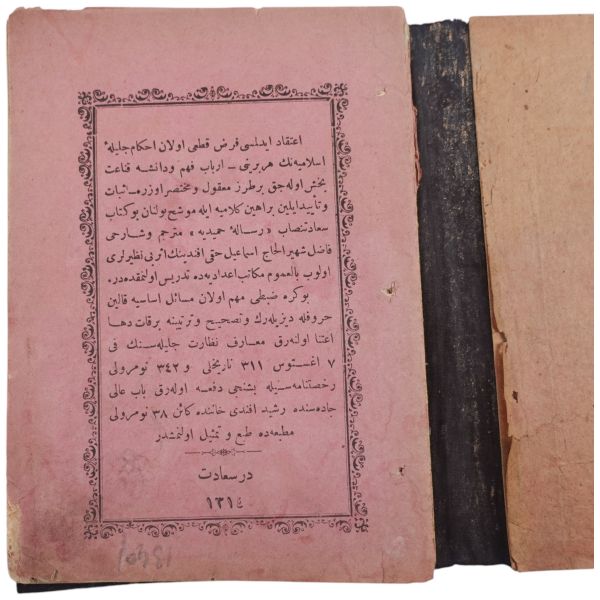 اعتقاد ایدلمسی فرض قطعی اولان احکام جلیلۀ
اسلامیه‌نك هر برینی – ارباب فهم ودانشه قناعت
بخش اوله‌جق بر طرز معقول ومختصر اوزره – اثبات
وتأیید ایلین براهین کلامیه ایله موشح بولنان بو کتاب
سعادتنصاب « رسالۀ حمیدیه » مترجم وشارحی
فاضل شهیر الحاج اسماعیل حقی افندینك اثر بی نظیرلری
اولوب بالعموم مکاتب اعدادیه‌ده تدریس اولنمقده‌در.
بو کره ضبطی مهم اولان مسائل اساسیه قالین
حروفله دیزیله‌رك وتصحیح وترتیبنه برقات دها
اعتنا اولنه‌رق معارف نظارت جلیله‌سنك فی
۷ اغستوس ۳۱۱ تاریخلی و ۳٤۲ نومرولی
رخصتنامه‌سنیله بشنجی دفعه اوله‌رق باب عالی
جاده‌سنده رشید افندی خاننده کائن ۳۸ نومرولی
مطبعه‌ده طبع و تمثیل اولنمشدر
در سعادت
۱۳۱٤